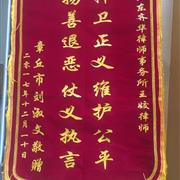 东齐华律师事务所王姣律师
捍卫正义维护公平
扬善退恶仗义执言
章丘市刘淑文敬赠
二零一七年十二月一十日